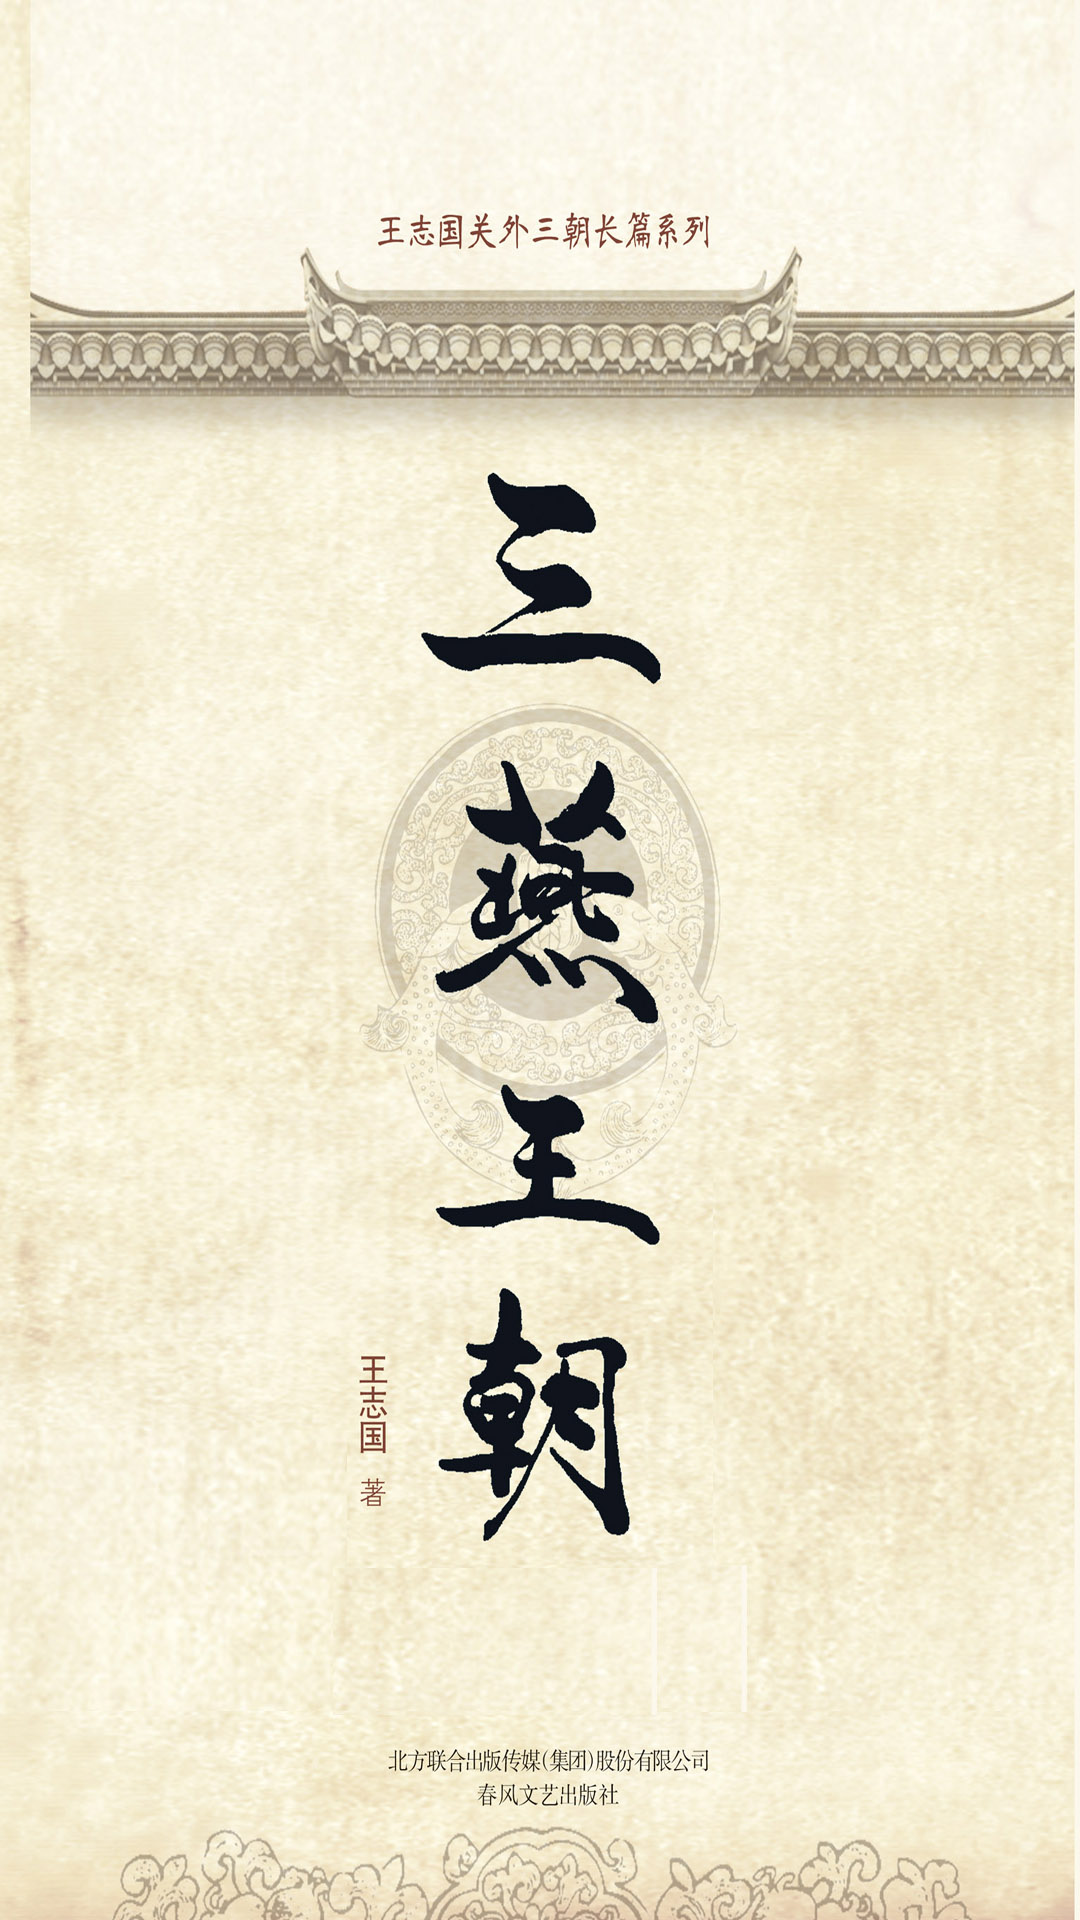 王志国关外三朝长篇系列
三燕王朝
王志国 著
北方联合出版传媒(集团)股份有限公司
春风文艺出版社